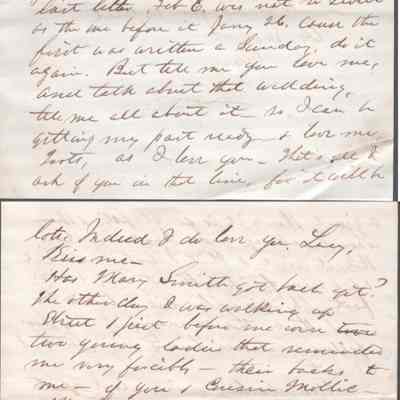 last letter, Feb 6, was not so
as the one before it Jany 26, cause the
first was written a Sunday, do it
again. But tell me you love me,
and talk about that wedding,
tell me all about it so I can be
getting my part ready & love me
lots, as I love you - that's all I
ask of you in that line, for it will be
lots. Indeed I do love you, Lucy,
Kiss me -
Has Mary Smith got back yet?
The other day I was walking up
Street & just before me were
two young ladies that reminded
me very forcibly - their backs to
me - of you & Cousin Mollie -